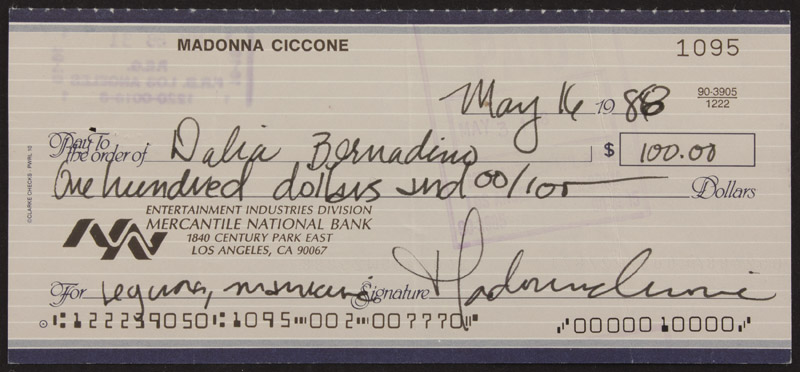 MADONNA CICCONE
1095
May 16 1988
90-3905
1222
Pay To the order of Dalia Bernadino $ 100.00
One hundred dollars and 00/100 Dollars
ENTERTAINMENT INDUSTRIES DIVISION
MERCANTILE NATIONAL BANK
1840 CENTURY PARK EAST
LOS ANGELES, CA 90067
For Signature Madonna Ciccone
⑆122239050⑆1095⑈002⑈007770⑈ ⑈0000010000⑈
©CLARKE CHECKS PWRL 10